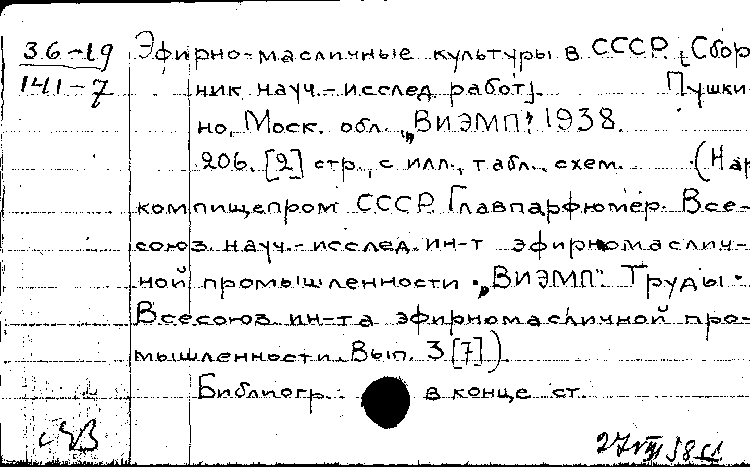 36-19
141-7
Эфирно-масличные культуры в СССР. [Сбор
ник науч.-исслед. работ]. Пушки-
но, Моск. обл. „ВИЭМП", 1938.
206. [2] стр., с илл., табл., схем. (Нар
компищепром СССР. Главпарфюмер. Все-
союз. науч.-исслед. ин-т эфирномаслич-
ной промышленности. „ВИЭМП". Труды.
Всесоюз. ин-та эфирномасличной про-
мышленности. Вып. 3 [7]).
Библиогр.: в конце ст.